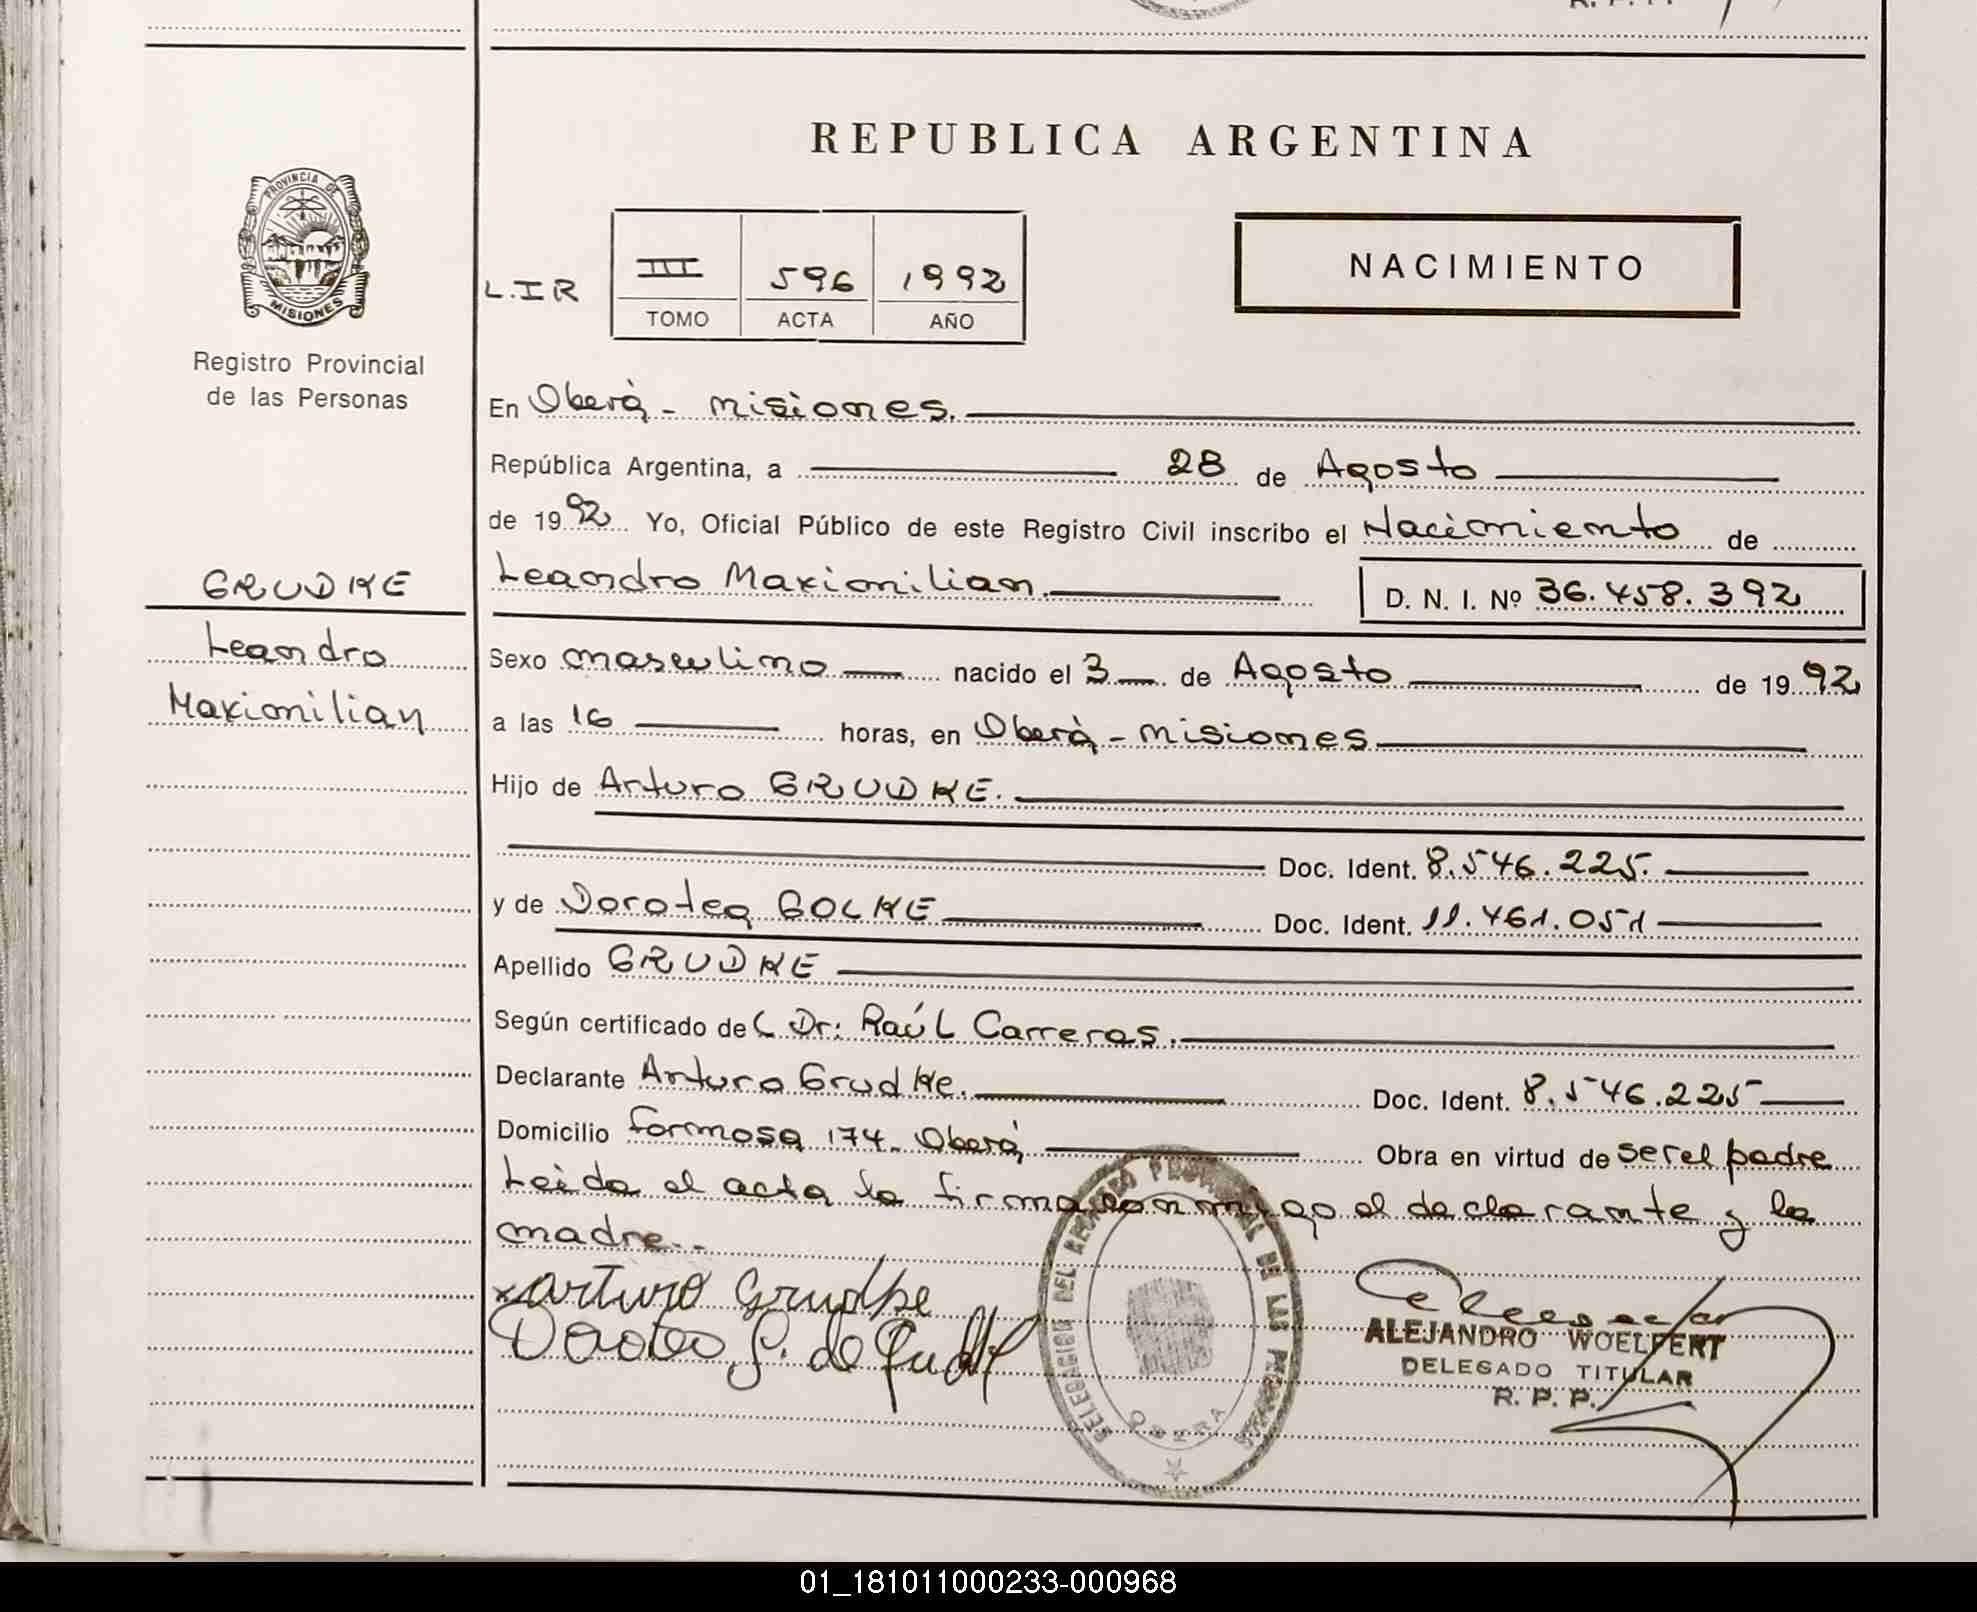 REPUBLICA ARGENTINA
PROVINCIA DE
MISIONES
Registro Provincial
de las Personas
L.IR
III 596 1992
TOMO ACTA AÑO
NACIMIENTO
En Oberá - Misiones.
República Argentina, a 28 de Agosto
de 1992 Yo, Oficial Público de este Registro Civil inscribo el Nacimiento de
GRUDKE
Leandro
Maximilian
Leandro Maximilian. D. N. I. Nº 36.458.392
Sexo masculino nacido el 3 de Agosto de 1992
a las 16 horas, en Oberá - Misiones
Hijo de Arturo GRUDKE.
Doc. Ident. 8.546.225.
y de Dorotea GOLKE Doc. Ident. 11.461.051
Apellido GRUDKE
Según certificado del Dr: Raúl Carreras.
Declarante Arturo Grudke. Doc. Ident. 8.546.225
Domicilio Formosa 174. Oberá Obra en virtud de ser el padre
Leida el acta la firma conmigo el declarante y la
madre.-
x Arturo Grudke
ALEJANDRO WOELFERT
DELEGADO TITULAR
R. P. P.
DELEGACION DEL REGISTRO PROVINCIAL DE LAS PERSONAS
OBERA
01_181011000233-000968